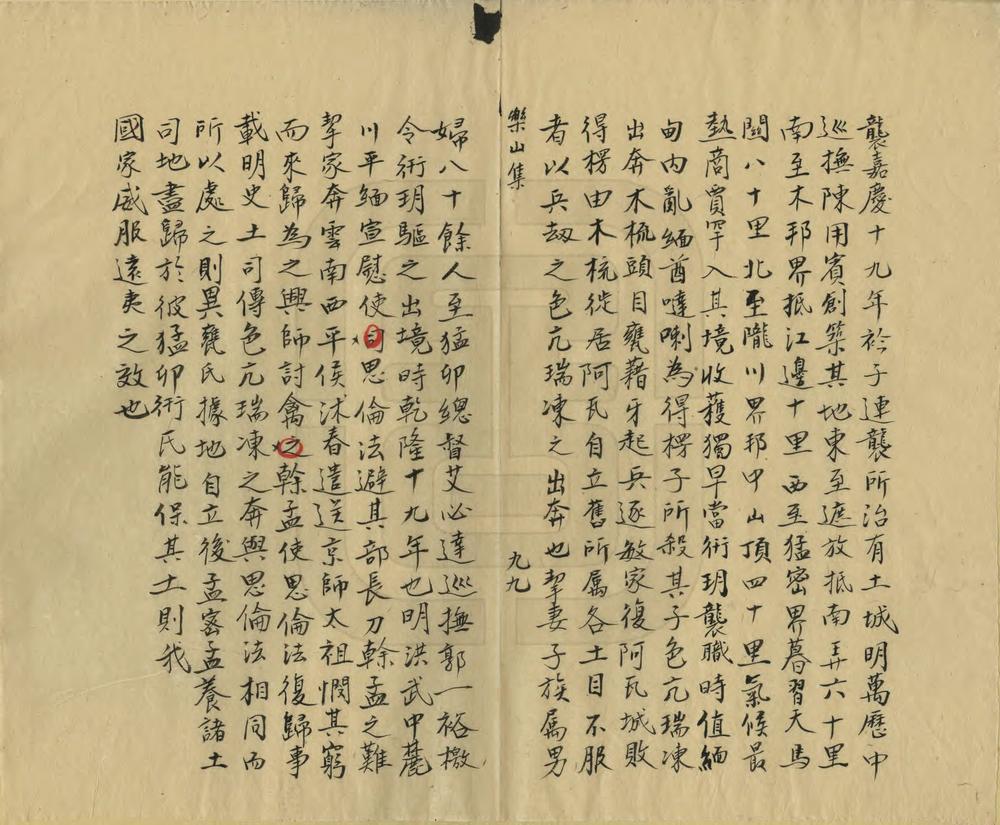 襲嘉慶十九年衿子連襲所治有土城明萬歷中
巡撫陳用賓創築其地東至遮放抵南弄六十里
南至木邦界抵江邊十里西至猛密界暮習天馬
關八十里北至隴川界邦中山頂四十里氣候最
熱商賈罕入其境收穫獨早當衎玥襲職時值緬
甸内亂緬酋噠喇為得楞子所殺其子色亢瑞凍
出奔木梳頭目甕藉牙起兵逐敏家復阿瓦城敗
得楞由木梳徙居阿瓦自立舊所属各土目不服
者以兵劫之色亢瑞凍之出奔也挈妻子族属男
樂山集
九九
婦八十餘人至猛卯總督艾必達巡撫郭一裕檄
令衎玥驅之出境時乾隆十九年也明洪武中麓
川平緬宣慰使司思倫法避其部長刀榦孟之難
挈家奔雲南西平侯沐春遣送京師太祖憫其窮
而來歸為之興師討禽之榦孟使思倫法復歸事
載明史土司傳色亢瑞凍之奔與思倫法相同而
所以處之則異甕氏據地自立後孟密孟養諸土
司地盡歸於彼猛卯衎氏能保其土則我
國家威服遠夷之效也